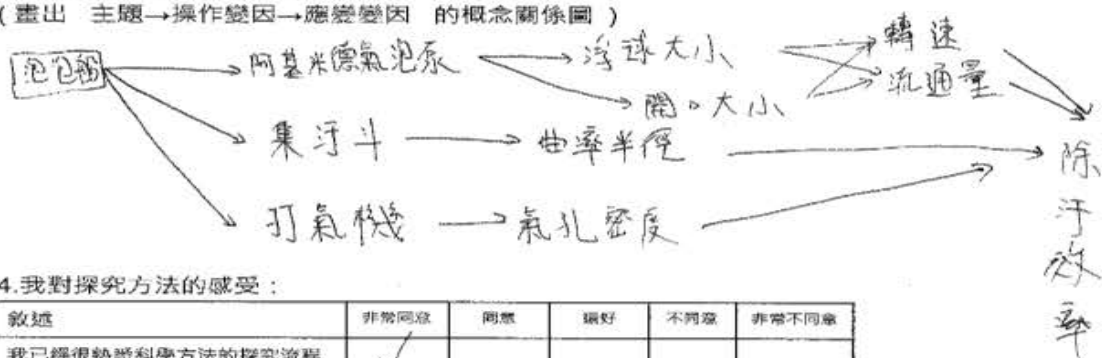 (畫出 主題→操作變因→應變變因 的概念關係圖 )
阿基米德氣泡泵 → 浮球大小 → 轉速
開口大小 → 流通量
集汙斗 → 曲率半徑 → 除汙效率
打氣機 → 氣孔密度
4.我對探究方法的感受:
敘述 非常同意 同意 還好 不同意 非常不同意
我已經很熟悉科學方法的探究流程